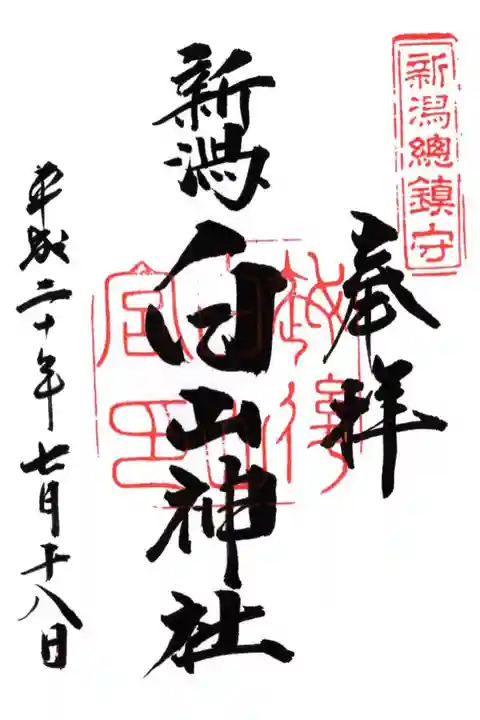 新潟總鎮守
奉拝
新潟白山神社
越後
白山
宮印
平成二十年七月十八日